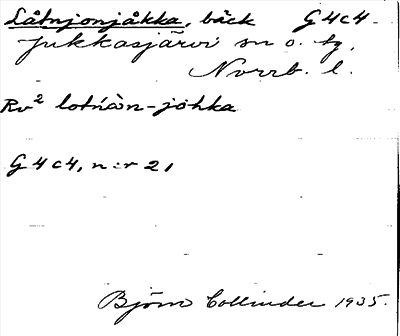 Låtnjonjåkka, bäck G4c4.
Jukkasjärvi sn o. tg,
Norrb. l.
Rv² lotńàn-johka
G4c4, n:r 21
Björn Collinder 1935.